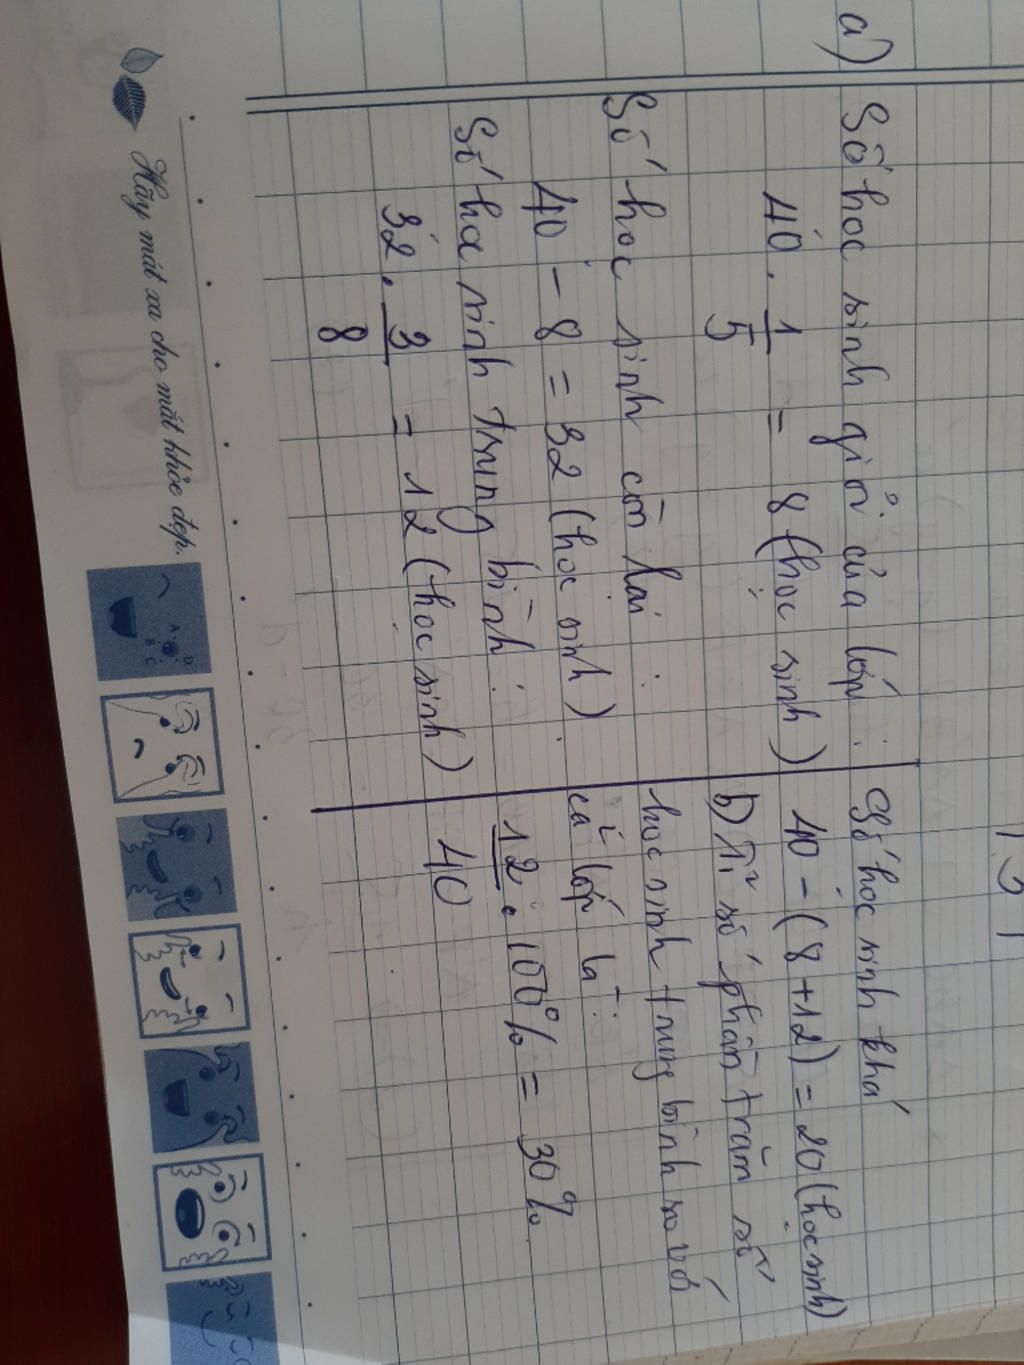 a) Số học sinh giỏi của lớp :
40 . 1/5 = 8 (học sinh)
Số học sinh còn lại :
40 - 8 = 32 (học sinh)
Số học sinh trung bình :
32 . 3/8 = 12 (học sinh)
Số học sinh khá
40 - (8 + 12) = 20 (học sinh)
b) Tỉ số phần trăm số
học sinh trung bình so với
cả lớp là :
12/40 . 100% = 30%
Hãy mát xa cho mắt khỏe đẹp.